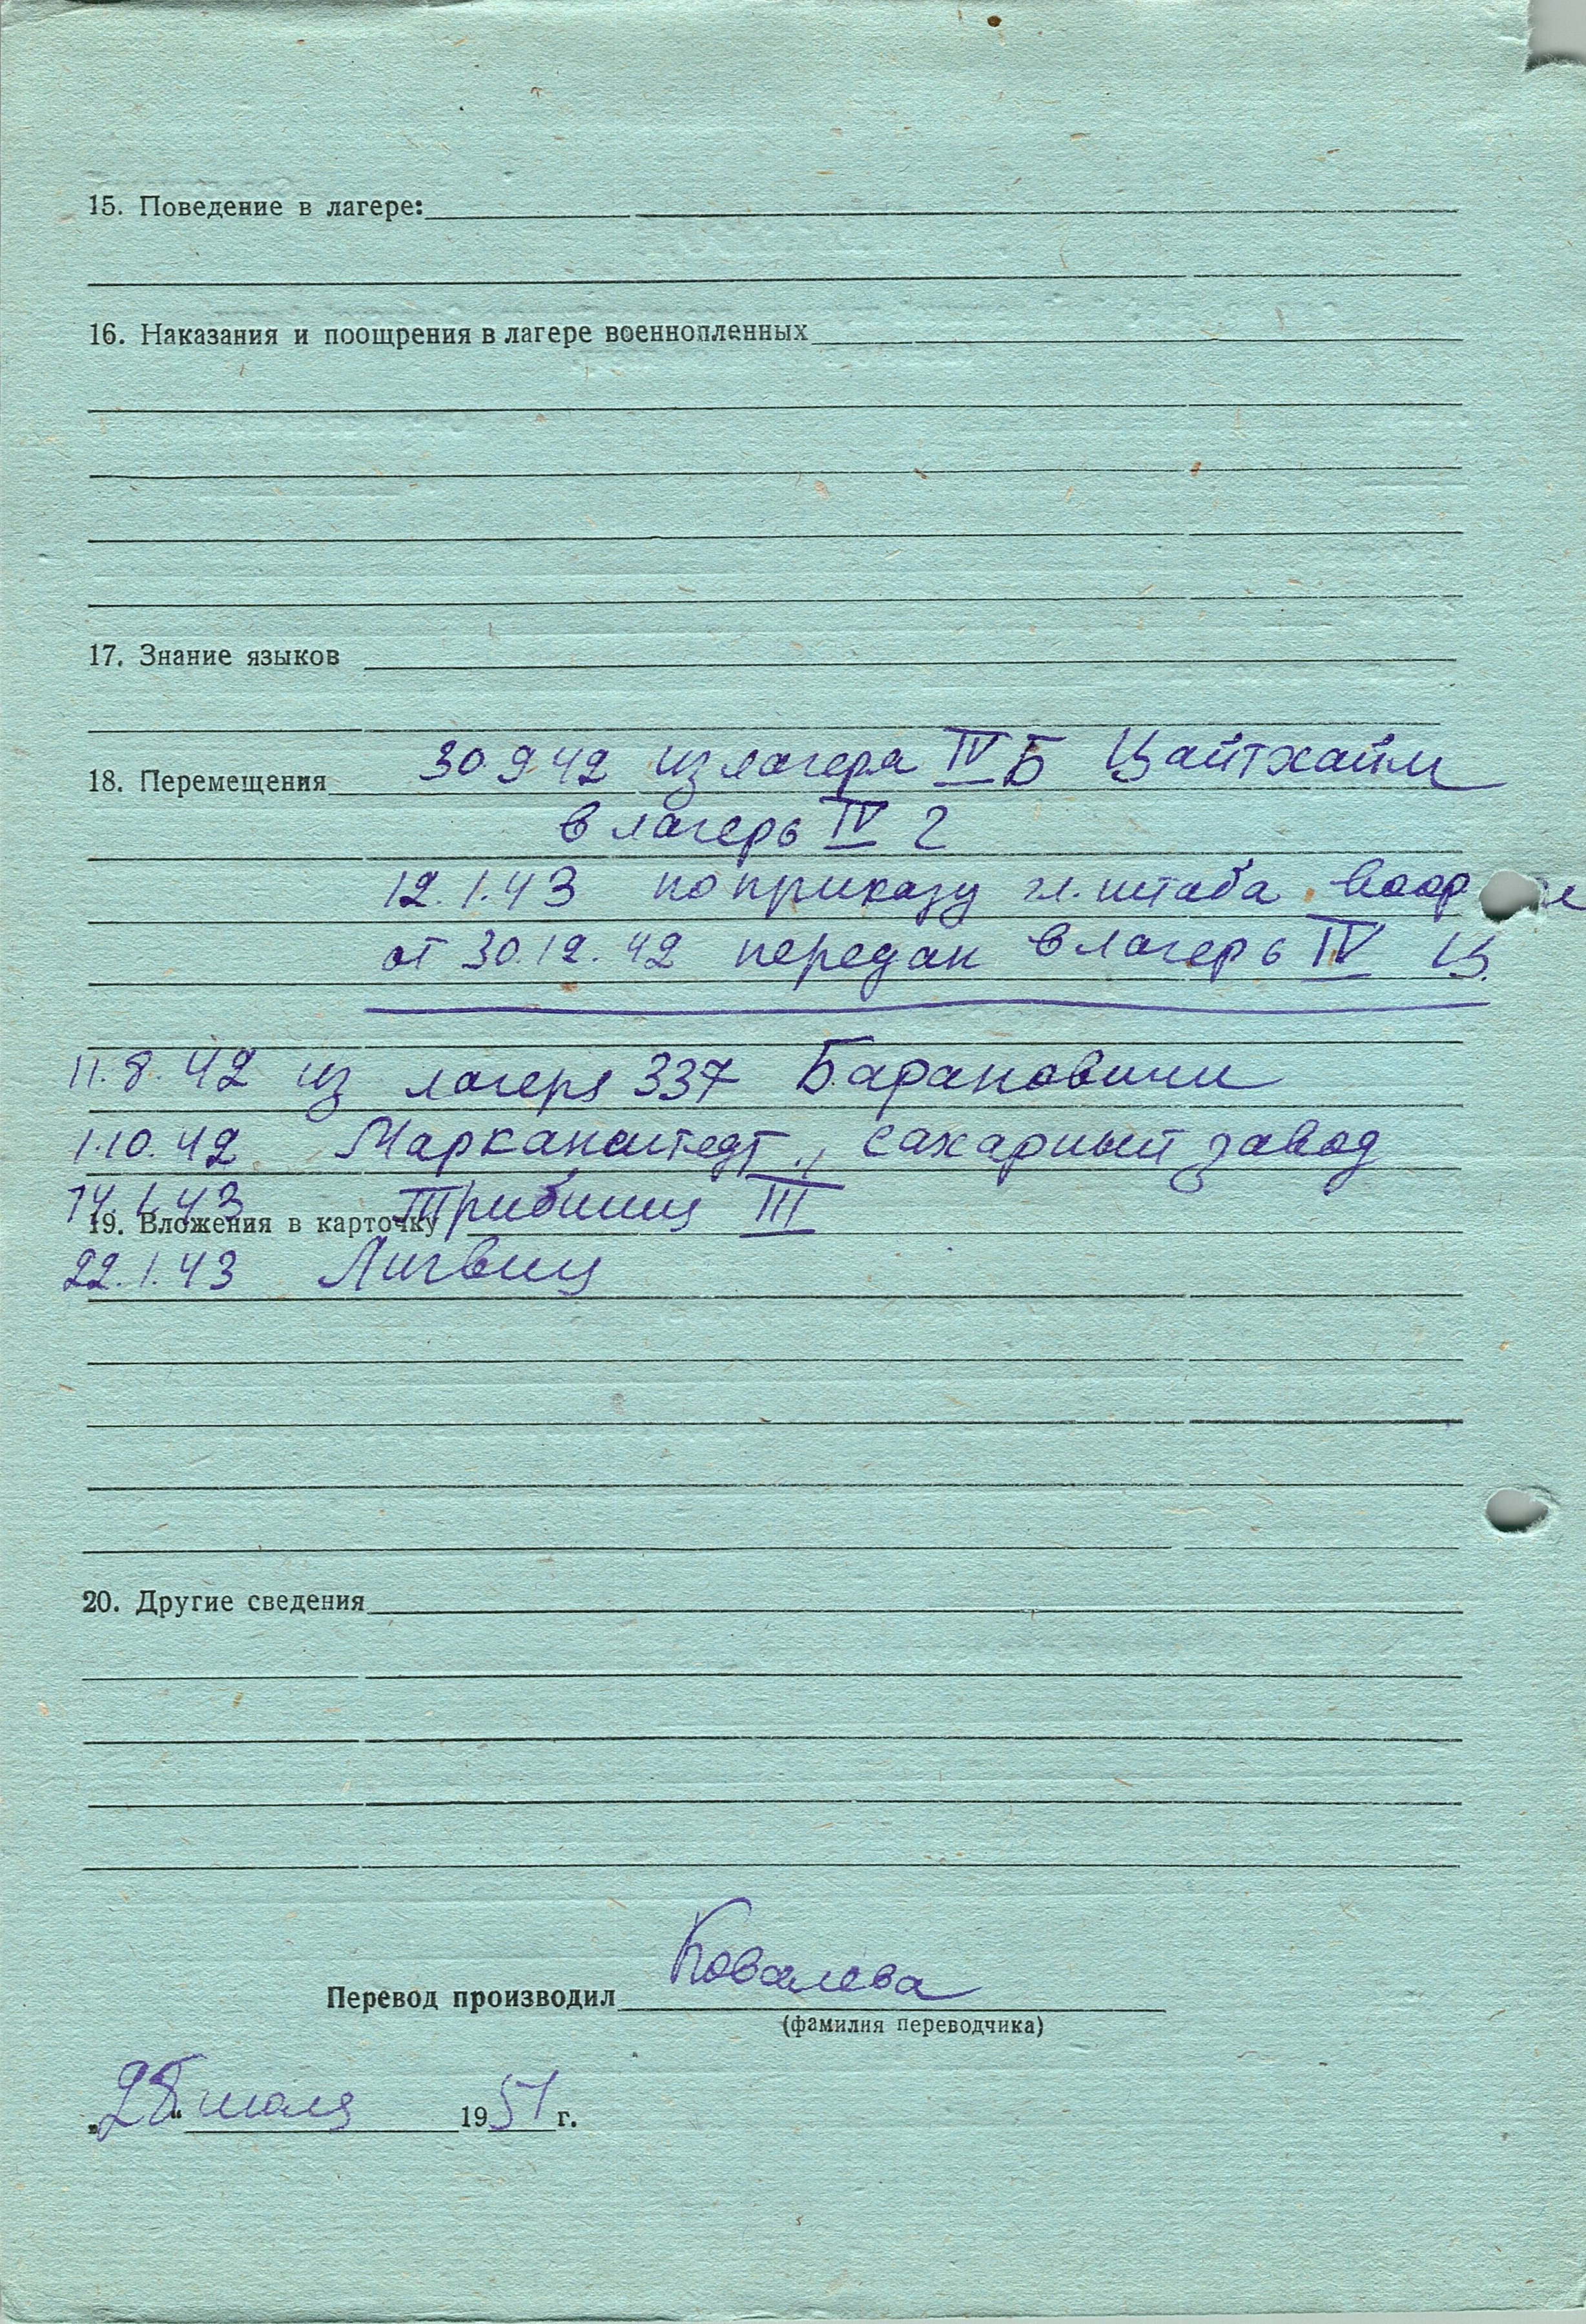 15. Поведение в лагере:
16. Наказания и поощрения в лагере военнопленных
17. Знание языков
18. Перемещения 30 9 42 из лагеря IV Б Цайтхайм
в лагерь IV г
12.1.43 по приказу гл. штаба воор
от 30.12.42 передан в лагерь IV Ц.
11.8.42 из лагеря 337 Барановичи
1.10.42 Маркранштедт, сахарный завод
14.1.43 Трибшиц III
19. Вложения в карточку
22.1.43 Лигвиц
20. Другие сведения
Перевод производил Ковалева
(фамилия переводчика)
„28“ июля 1951 г.